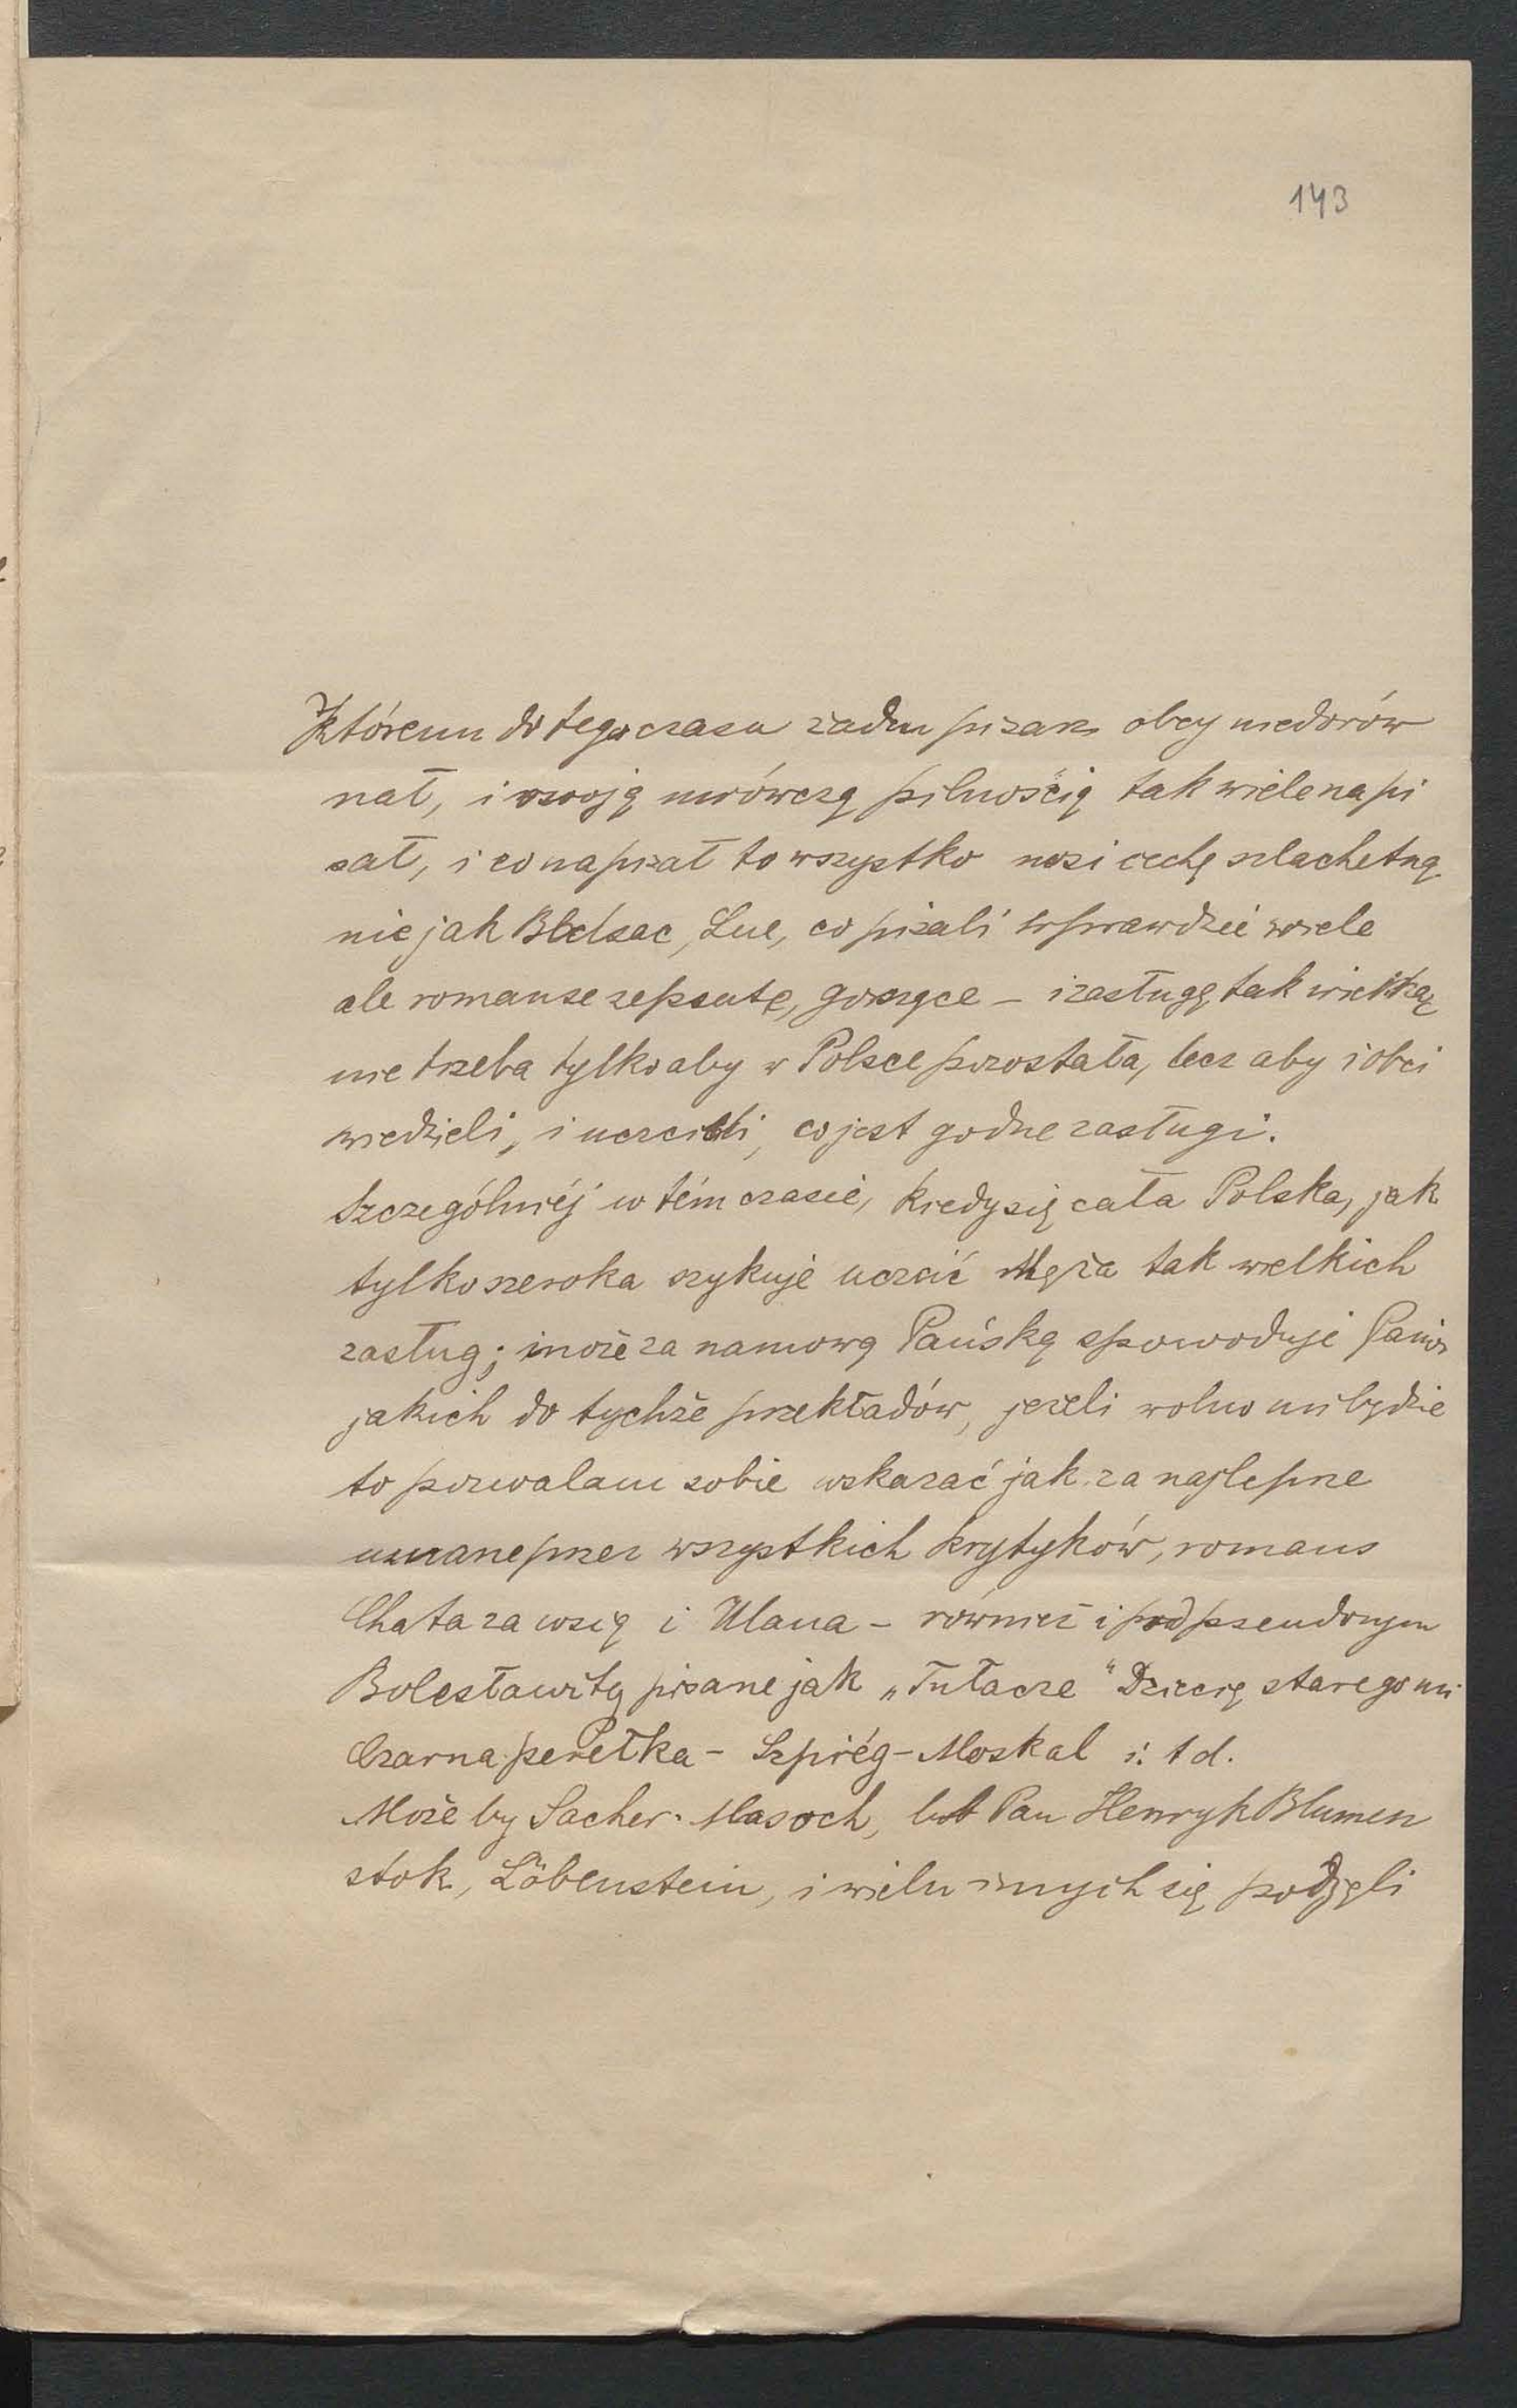 143
któremu do tego czasu żaden pisarz obcy niedorów
nał, i swoją mrówczą pilnością tak wiele napi
sał, i co napisał to wszystko nosi cechę szlachetną
nie jak Baldsac, Sue, co pisali wprawdzie wiele
ale romanse zepsute, gorszące – i zasługę tak wielką
nie trzeba tylko aby w Polsce pozostała, lecz aby i obci
wiedzieli, i uczcili, co jest godne zasługi.
Szczególniéj w tém czasie, kiedy się cała Polska, jak
tylko szeroka szykuje uczcić Męża tak wielkich
zasług; i może za namową Pańską spowoduje Panów
jakich do tychże przekładów, jeżeli wolno mi będzie
to pozwalam sobie wskazać jak za najlepsze
uznane przez wszystkich krytyków, romans
Chata za wsią i Ulana – również i pod pseudonym
Bolesławitą pisane jak „Tułacze“ Dziecię starego mi
Czarna perełka – Szpiég – Moskal i. t d.
Może by Sacher-Masoch, lub Pan Henryk Blumen
stok, Löbenstein, i wielu innych się podjęli